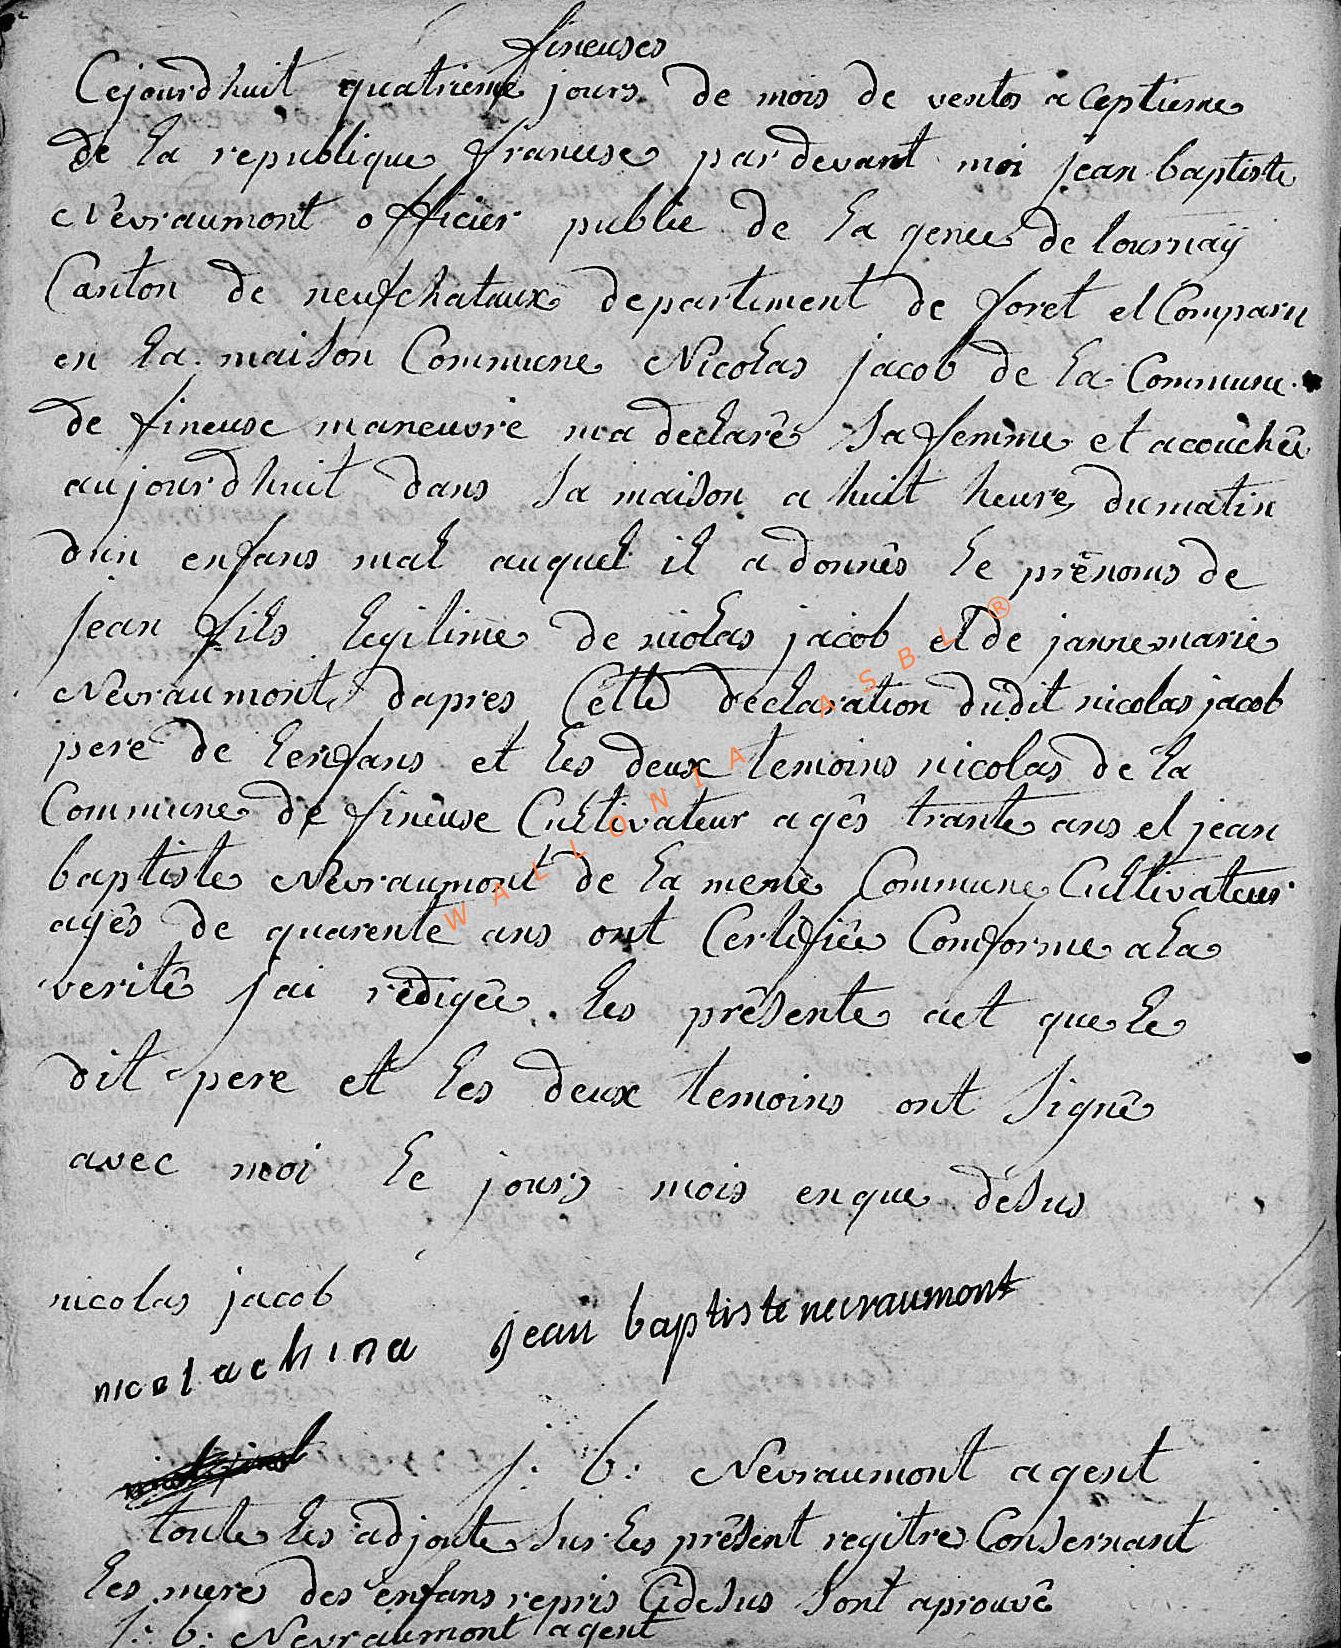 fineuses
Cejourdhuit quatrieme jours de mois de ventos a ceptieme
de la republique francuse par devant moi jean baptiste
Nevraumont officier public de la gence de lournaÿ
Canton de neufchataux departement de foret et Comparu
en la maison Commune Nicolas jacob de la Commune
de fineuse maneuvre ma declarê sa femme et acouchêe
aujourdhuit dans sa maison a huit heure du matin
dun enfans mal auquel il a donnês le prênoms de
jean fils legitime de nicolas jacob et de jannemarie
Nevraumont dapres Cette declaration dudit nicolas jacob
pere de lenfans et les deux temoins nicolas de la
Commune de fineuse Cultivateur agês trante ans et jean
baptiste Nevraumont de la meme Commune Cultivateur
agês de quarente ans ont Certifiêe Comforme a la
veritê jai rêdigêe les prêsente act que le
dit pere et les deux temoins ont signê
avec moi le jours mois enque desus
nicolas jacob
nicolachina jean baptiste nevraumont
j: b: Nevraumont agent
toute les adjoute sur les prêsent regitre Consernant
les mere des enfans repris Cidesus sont aprouvê
j: b: Nevraumont agent
WALLONIA ASBL ®